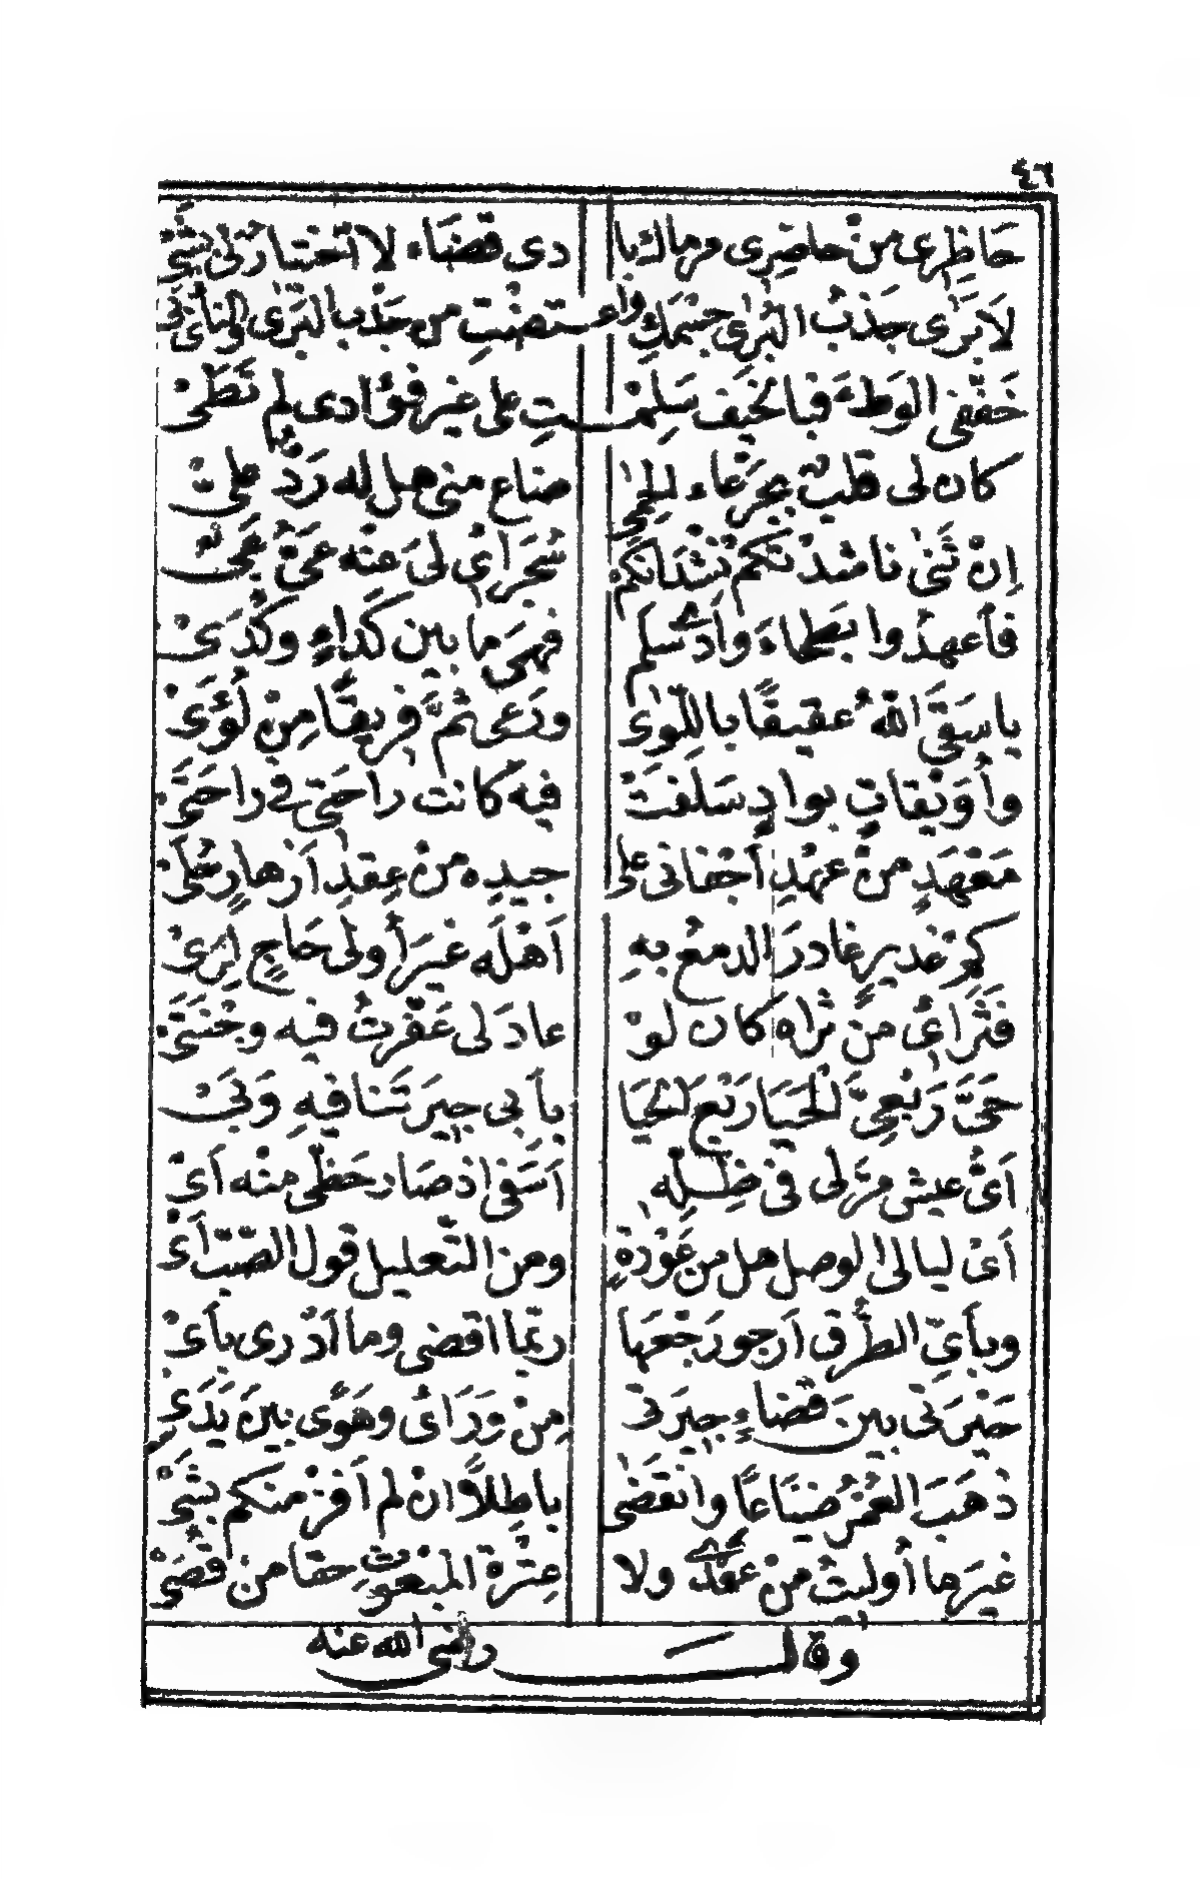 ٤٦
حَاظِرى مِنْ حاضِرِى مرماك با دى قضَاء لا اختيارٌ لى بشَىْ
لَا بَرَى جذبُ البُرى جِسْمَكِ واعـتضْتِ من جَذْبِ البَرَى والنأى نَىْ
خَفِّفى الوَطْءَ فبالخَيف سَلِمْـتِ على غيْر فؤادى لم تَطَىْ
كان لى قلبٌ بجَرْعاء الحِمَى ضاع منى هل له رَدٌّ علىْ
إنْ ثَنى ناشَدْتكمْ نِشْدَانَكمْ سُجَرَاى لىَ عنْه عَىُّ عَىْ
فاعهدوا بَطْحاءَ وادى سَلم فهىَ ما بين كَداءٍ وكُدَىْ
يا سَقَى اللهُ عقيقًا باللِّوى ورَعى ثَمَّ فريقًا مِنْ لُؤَىْ
وأُوَيْقاتٍ بوادٍ سَلفَتْ فيه كانت راحَتى فى راحَتَىْ
مَعْهَدٍ منْ عهْدِ أجْفانى على جيدِه منْ عِقدِ أزهارٍ حُلَىْ
كم غديرٍ غادرَ الدمعُ بهِ أهْلَه غيرَ أُولى حَاجٍ لِرَىْ
فثَراىْ منْ ثراه كان لوْ عادَ لى عَفّرْتُ فيه وجْنتَىْ
حَىَّ رَبْعِىَّ الْحَيَا رَبْعَ الحَيَا بأبى جيرَتنا فيهِ وَبَىْ
أىُّ عيشٍ مرَّ لى فى ظِلّه أسَفى اذ صَار حظّى منْه أىْ
أىْ ليالى الوصل هل من عَوْدةٍ ومن التّعليل قول الصّبّ أىْ
وبأىِّ الطُّرْق أرجو رَجْعَها ربّما اقضى وما أدْرى بأىْ
حَيْرَتى بين قَضاءٍ جيرَتى مِنْ وَرَاىْ وهَوًى بين يَدَىْ
ذَهَبَ العُمْرُ ضيَاعًا وانقضَى باطِلًا ان لم أفزْ منكم بشَىْ
غيرَ ما أُوليتُ منْ عقدى ولا عِتْرةِ المبْعوثِ حقا من قُصَىْ
وقال رضى الله عنه